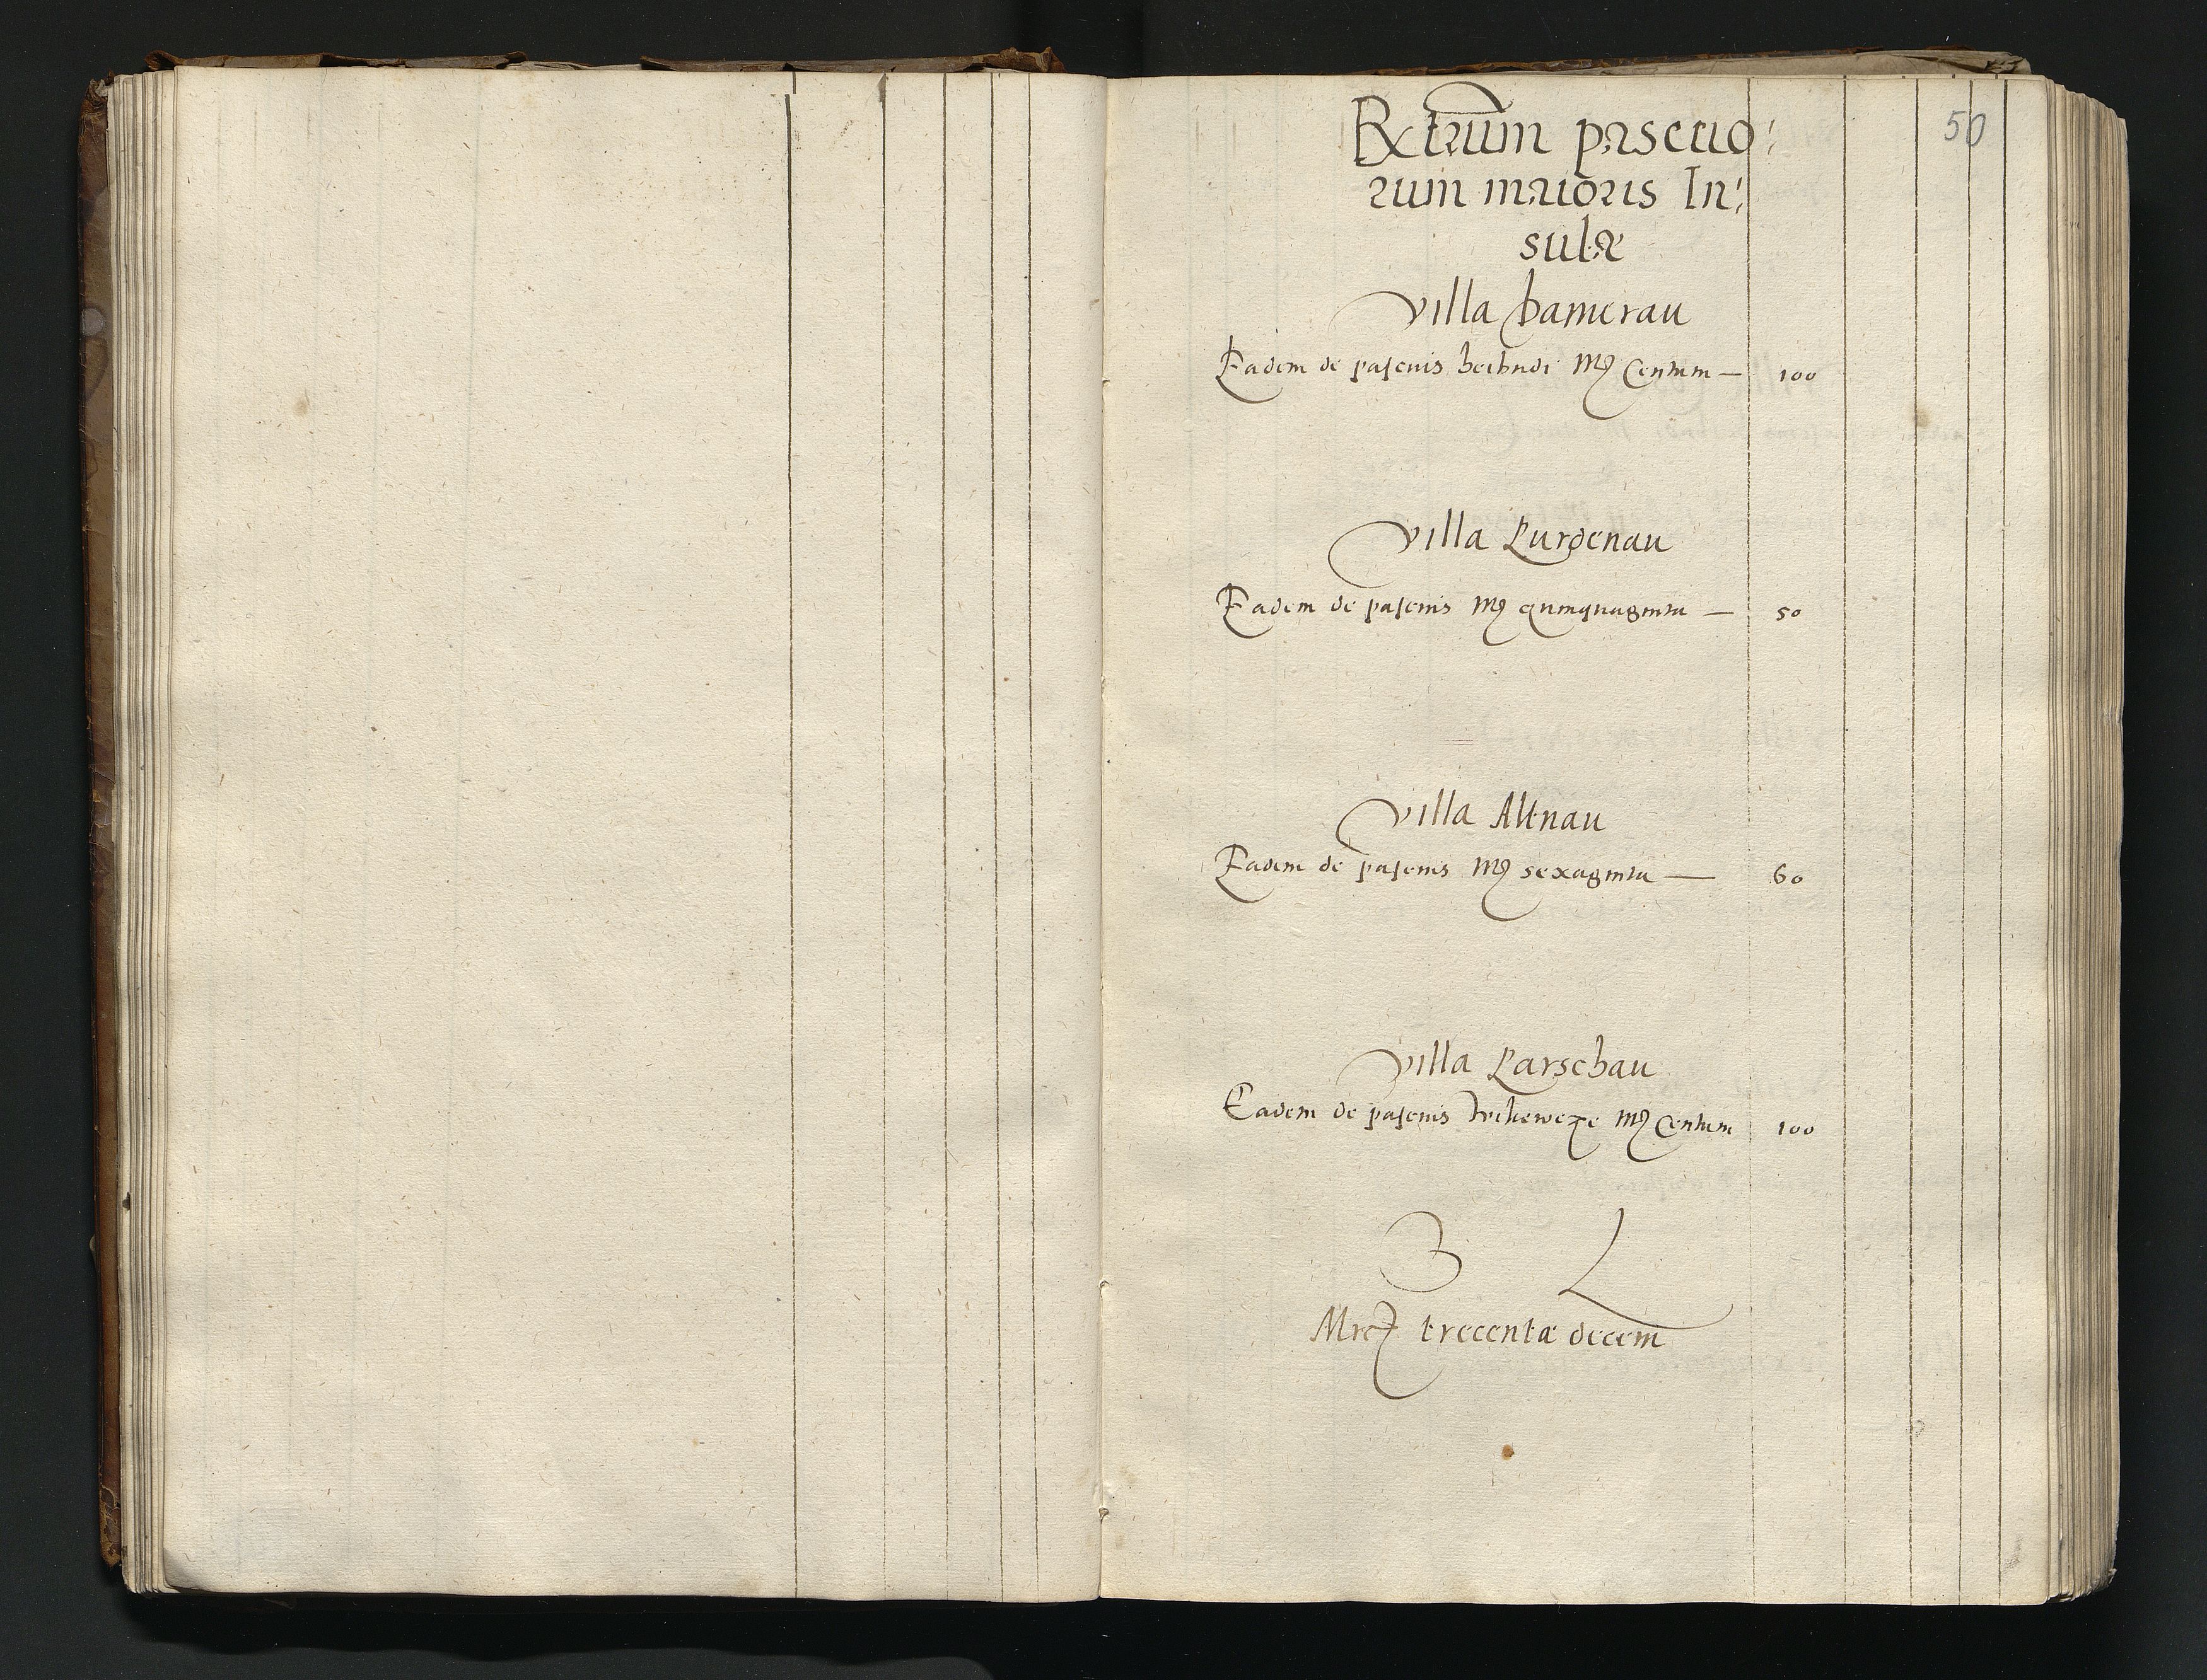 50
Extrum pascuo:
rum maioris In:
sulæ
Villa hamerau
Eadem de pascuis Mrc Centum — 100
Villa Lurdenau
Eadem de pascuis Mrc quinquaginta — 50
Villa Altnau
Eadem de pascuis Mrc sexaginta — 60
Villa Parschau
Eadem de pascuis Mrc Centum 100
3 L
Mrc trecentæ decem